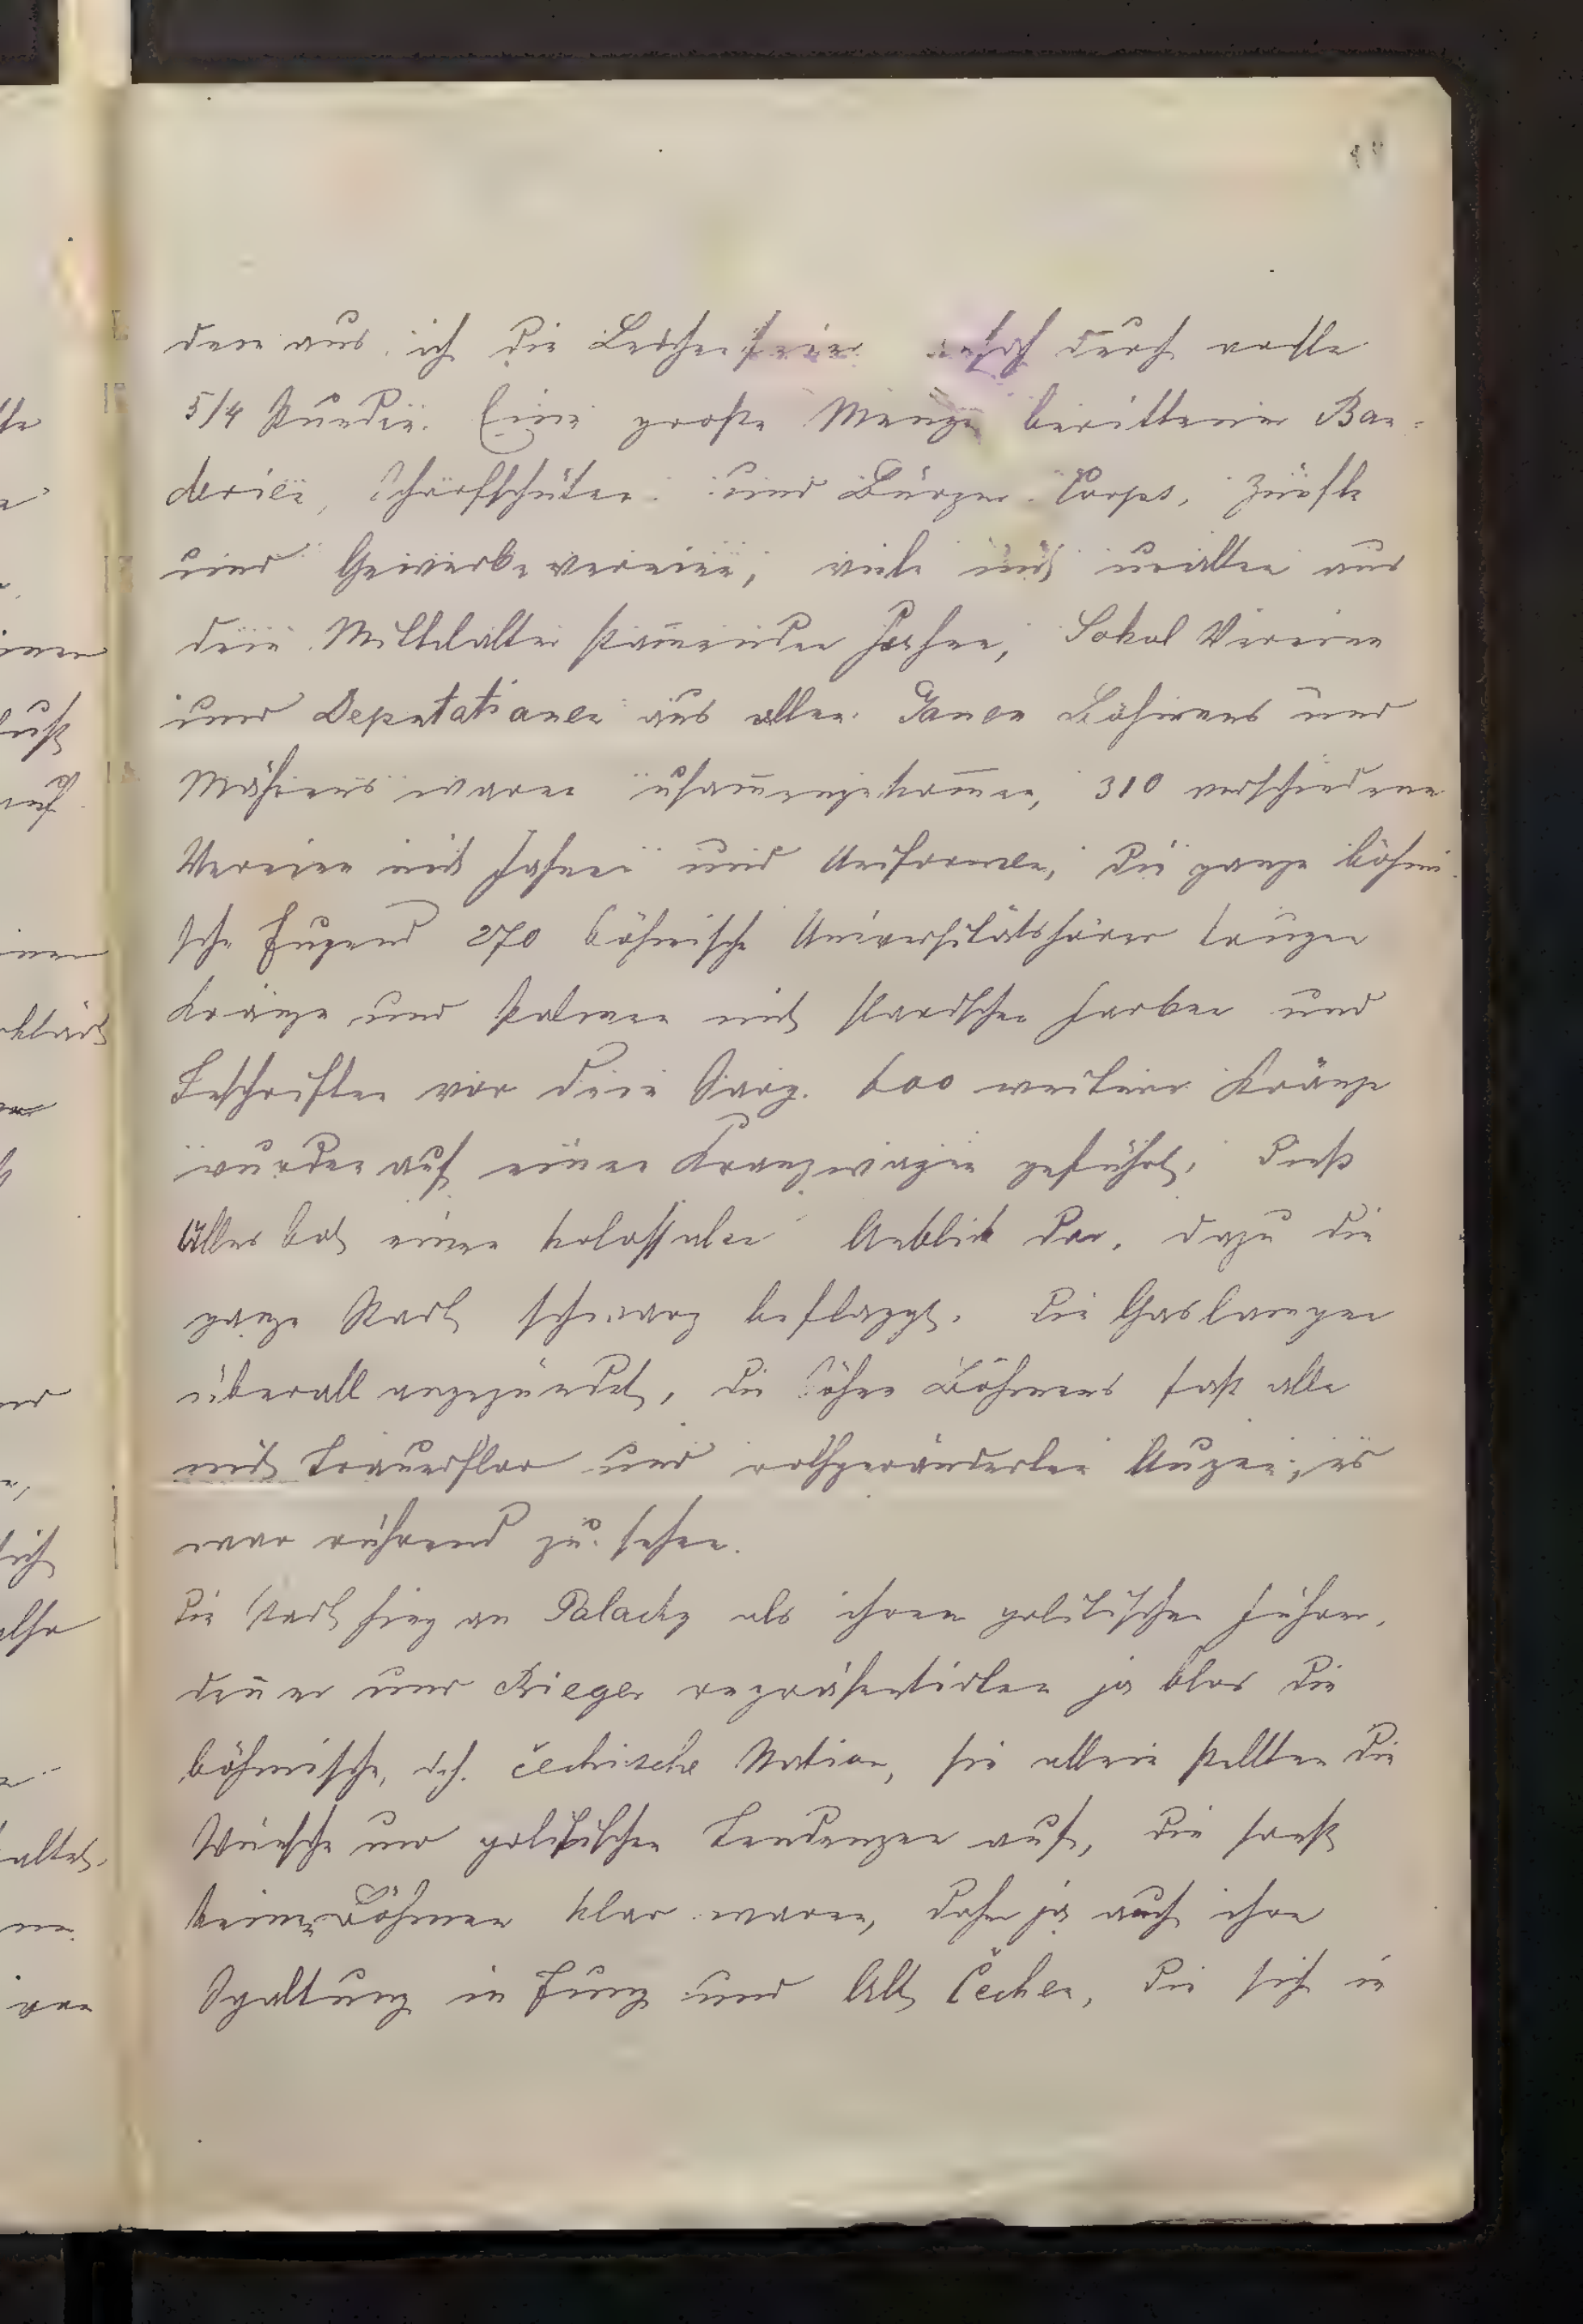 den aus ich die Leichenfeier ansah durch volle
5/4 Stunden. Eine große Menge berittener Ban-
derien, Scharfschützen und Bürger Corps, Zünfte
und Gewerbevereine, viele mit uralten aus
dem Mittelalter stam̅enden Fahnen, Sokol Vereine
und Deputationen aus allen Gauen Böhmens und
Mährens waren zusam̅engekom̅en, 310 verschiedene
Vereine mit Fahnen und Uniformen, die ganze böhmi
sche Jugend 270 böhmische Universitätshörer trugen
Kränze und Palmen mit slavischen Farben und
Inschriften vor dem Sarg. 600 weitere Kränze
wurden auf einen Kranzwagen geführt, dieß
Alles bot einen kolossalen Anblick dar, dazu die
ganze Stadt schwarz beflaggt. Die Gaslampen
überall angezündet, die Söhne Böhmens fast alle
mit Trauerflor und rothgeränderten Augen, es
war rührend zu sehen.
Die Stadt hing an Palacky als ihren politischen Führer,
den̅ er und Rieger repräsentirten ja blos die
böhmische, d.h. čechische Nation, sie allein stellten die
Wünsche und politischen Tendenzen auf, die sonst
keinem Böhmen klar waren, daher ja auch ihre
Spaltung in Jung und Alt Čechen, die sich in